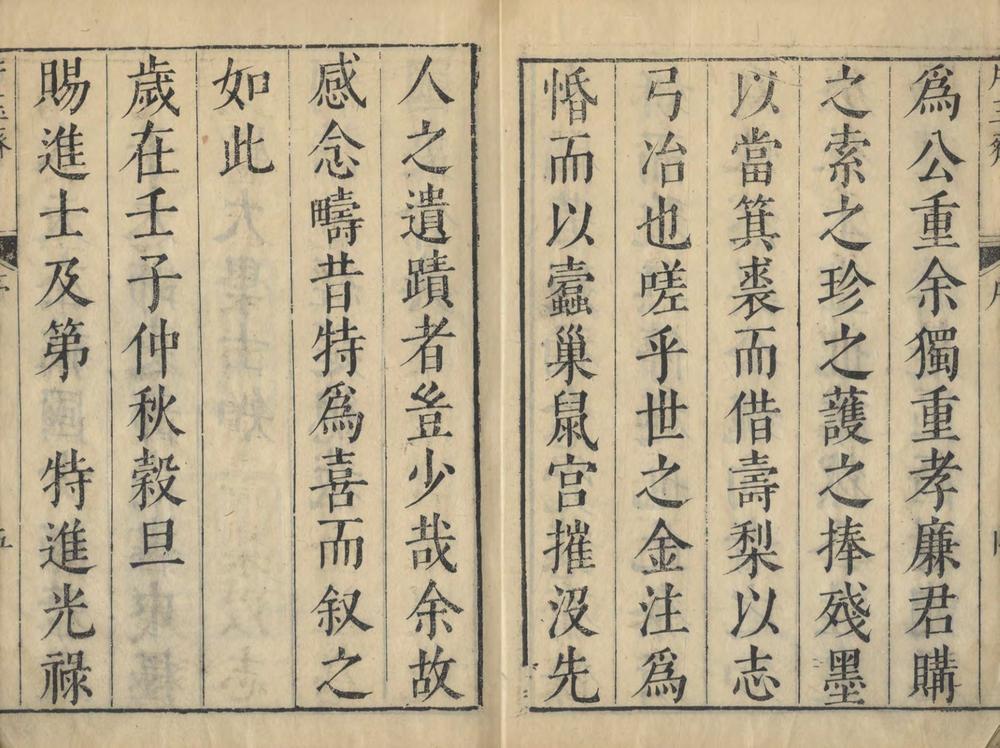 爲公重余獨重孝廉君購
之索之珍之䕶之捧殘墨
以當箕裘而借壽梨以志
弓冶也嗟乎世之金注爲
惛而以蠹巢鼠宫摧沒先
人之遺蹟者豈少哉余故
感念疇昔特爲喜而叙之
如此
歲在壬子仲秋穀旦
賜進士及第特進光祿